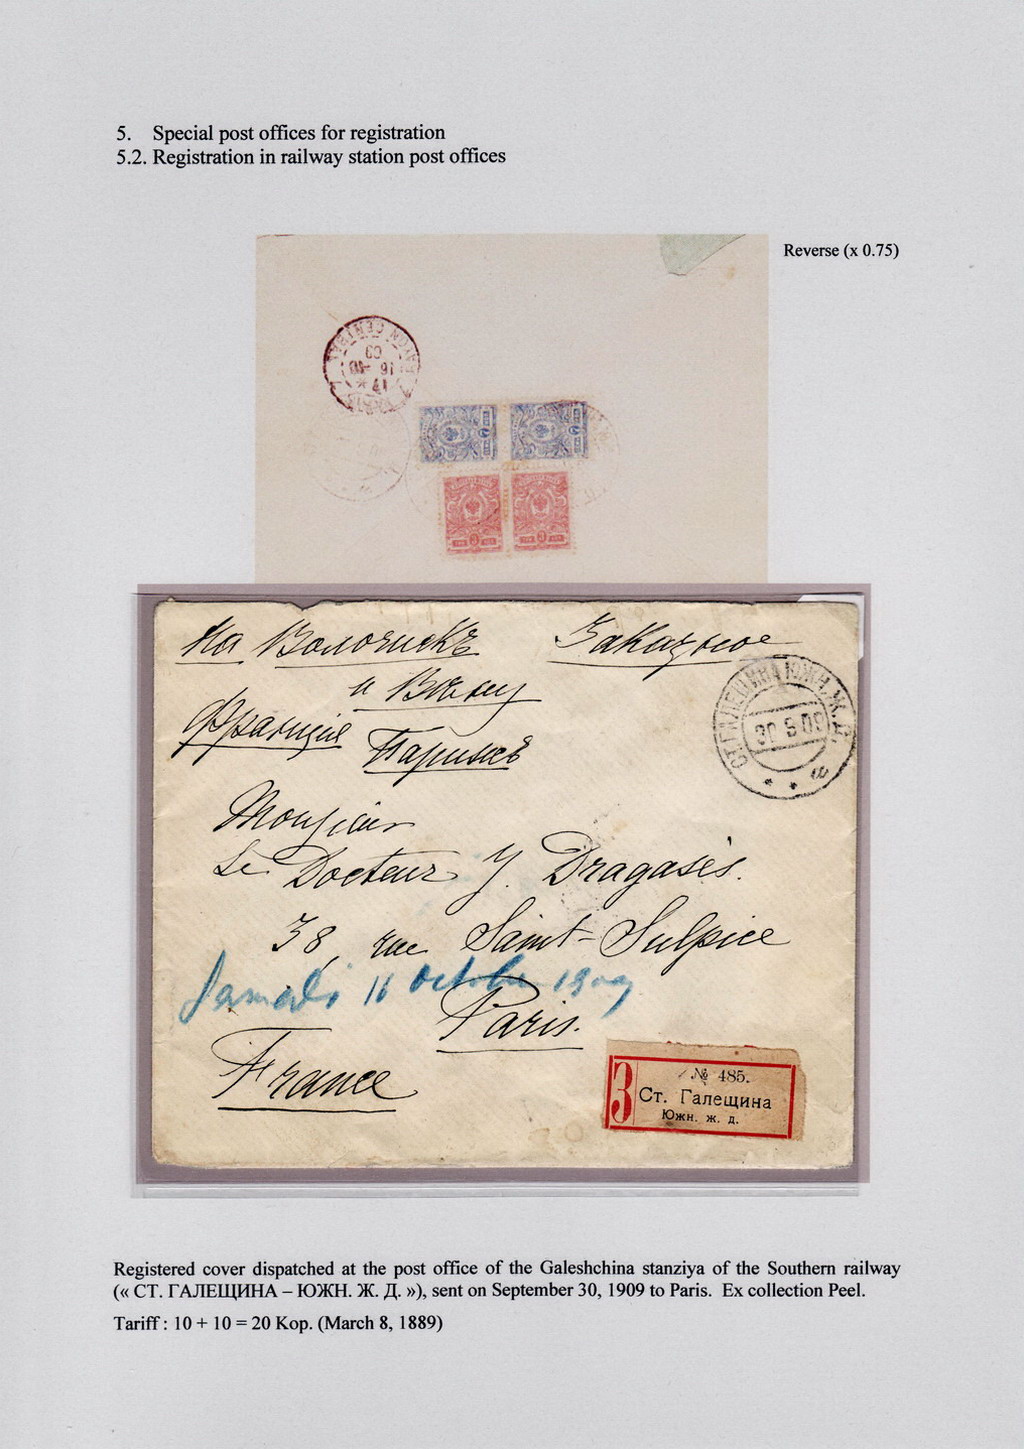 5. Special post offices for registration
5.2. Registration in railway station post offices
Reverse (x 0.75)
PARIS
17
16 -10
09
3 3
На Волочискъ Заказное
и Вѣну
Франція Парижъ
СТ. ГАЛЕЩИНА ЮЖН. Ж. Д.
30 9 09
Monsieur
Le Docteur J. Dragasès.
38, rue Saint-Sulpice
Samedi 16 Octobre 1909
Paris.
France
З
№ 485.
Ст. Галещина
Южн. ж. д.
Registered cover dispatched at the post office of the Galeshchina stanziya of the Southern railway
(« СТ. ГАЛЕЩИНА – ЮЖН. Ж. Д. »), sent on September 30, 1909 to Paris. Ex collection Peel.
Tariff : 10 + 10 = 20 Kop. (March 8, 1889)